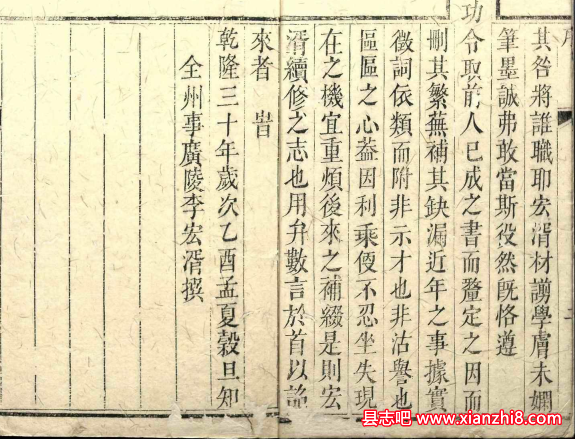 序
其咎將誰職耶宏湑材譾學膚未嫻
筆墨誠弗敢當斯役然旣恪遵
功令取前人已成之書而釐定之因而
刪其繁蕪補其缺漏近年之事據實
徵詞依類而附非示才也非沽譽也
區區之心葢因利乘便不忍坐失現
在之機宜重煩後來之補綴是則宏
湑續修之志也用弁數言於首以諗
來者 旹
乾隆三十年歲次乙酉孟夏穀旦知
全州事廣陵李宏湑撰
县志吧 www.xianzhi8.com